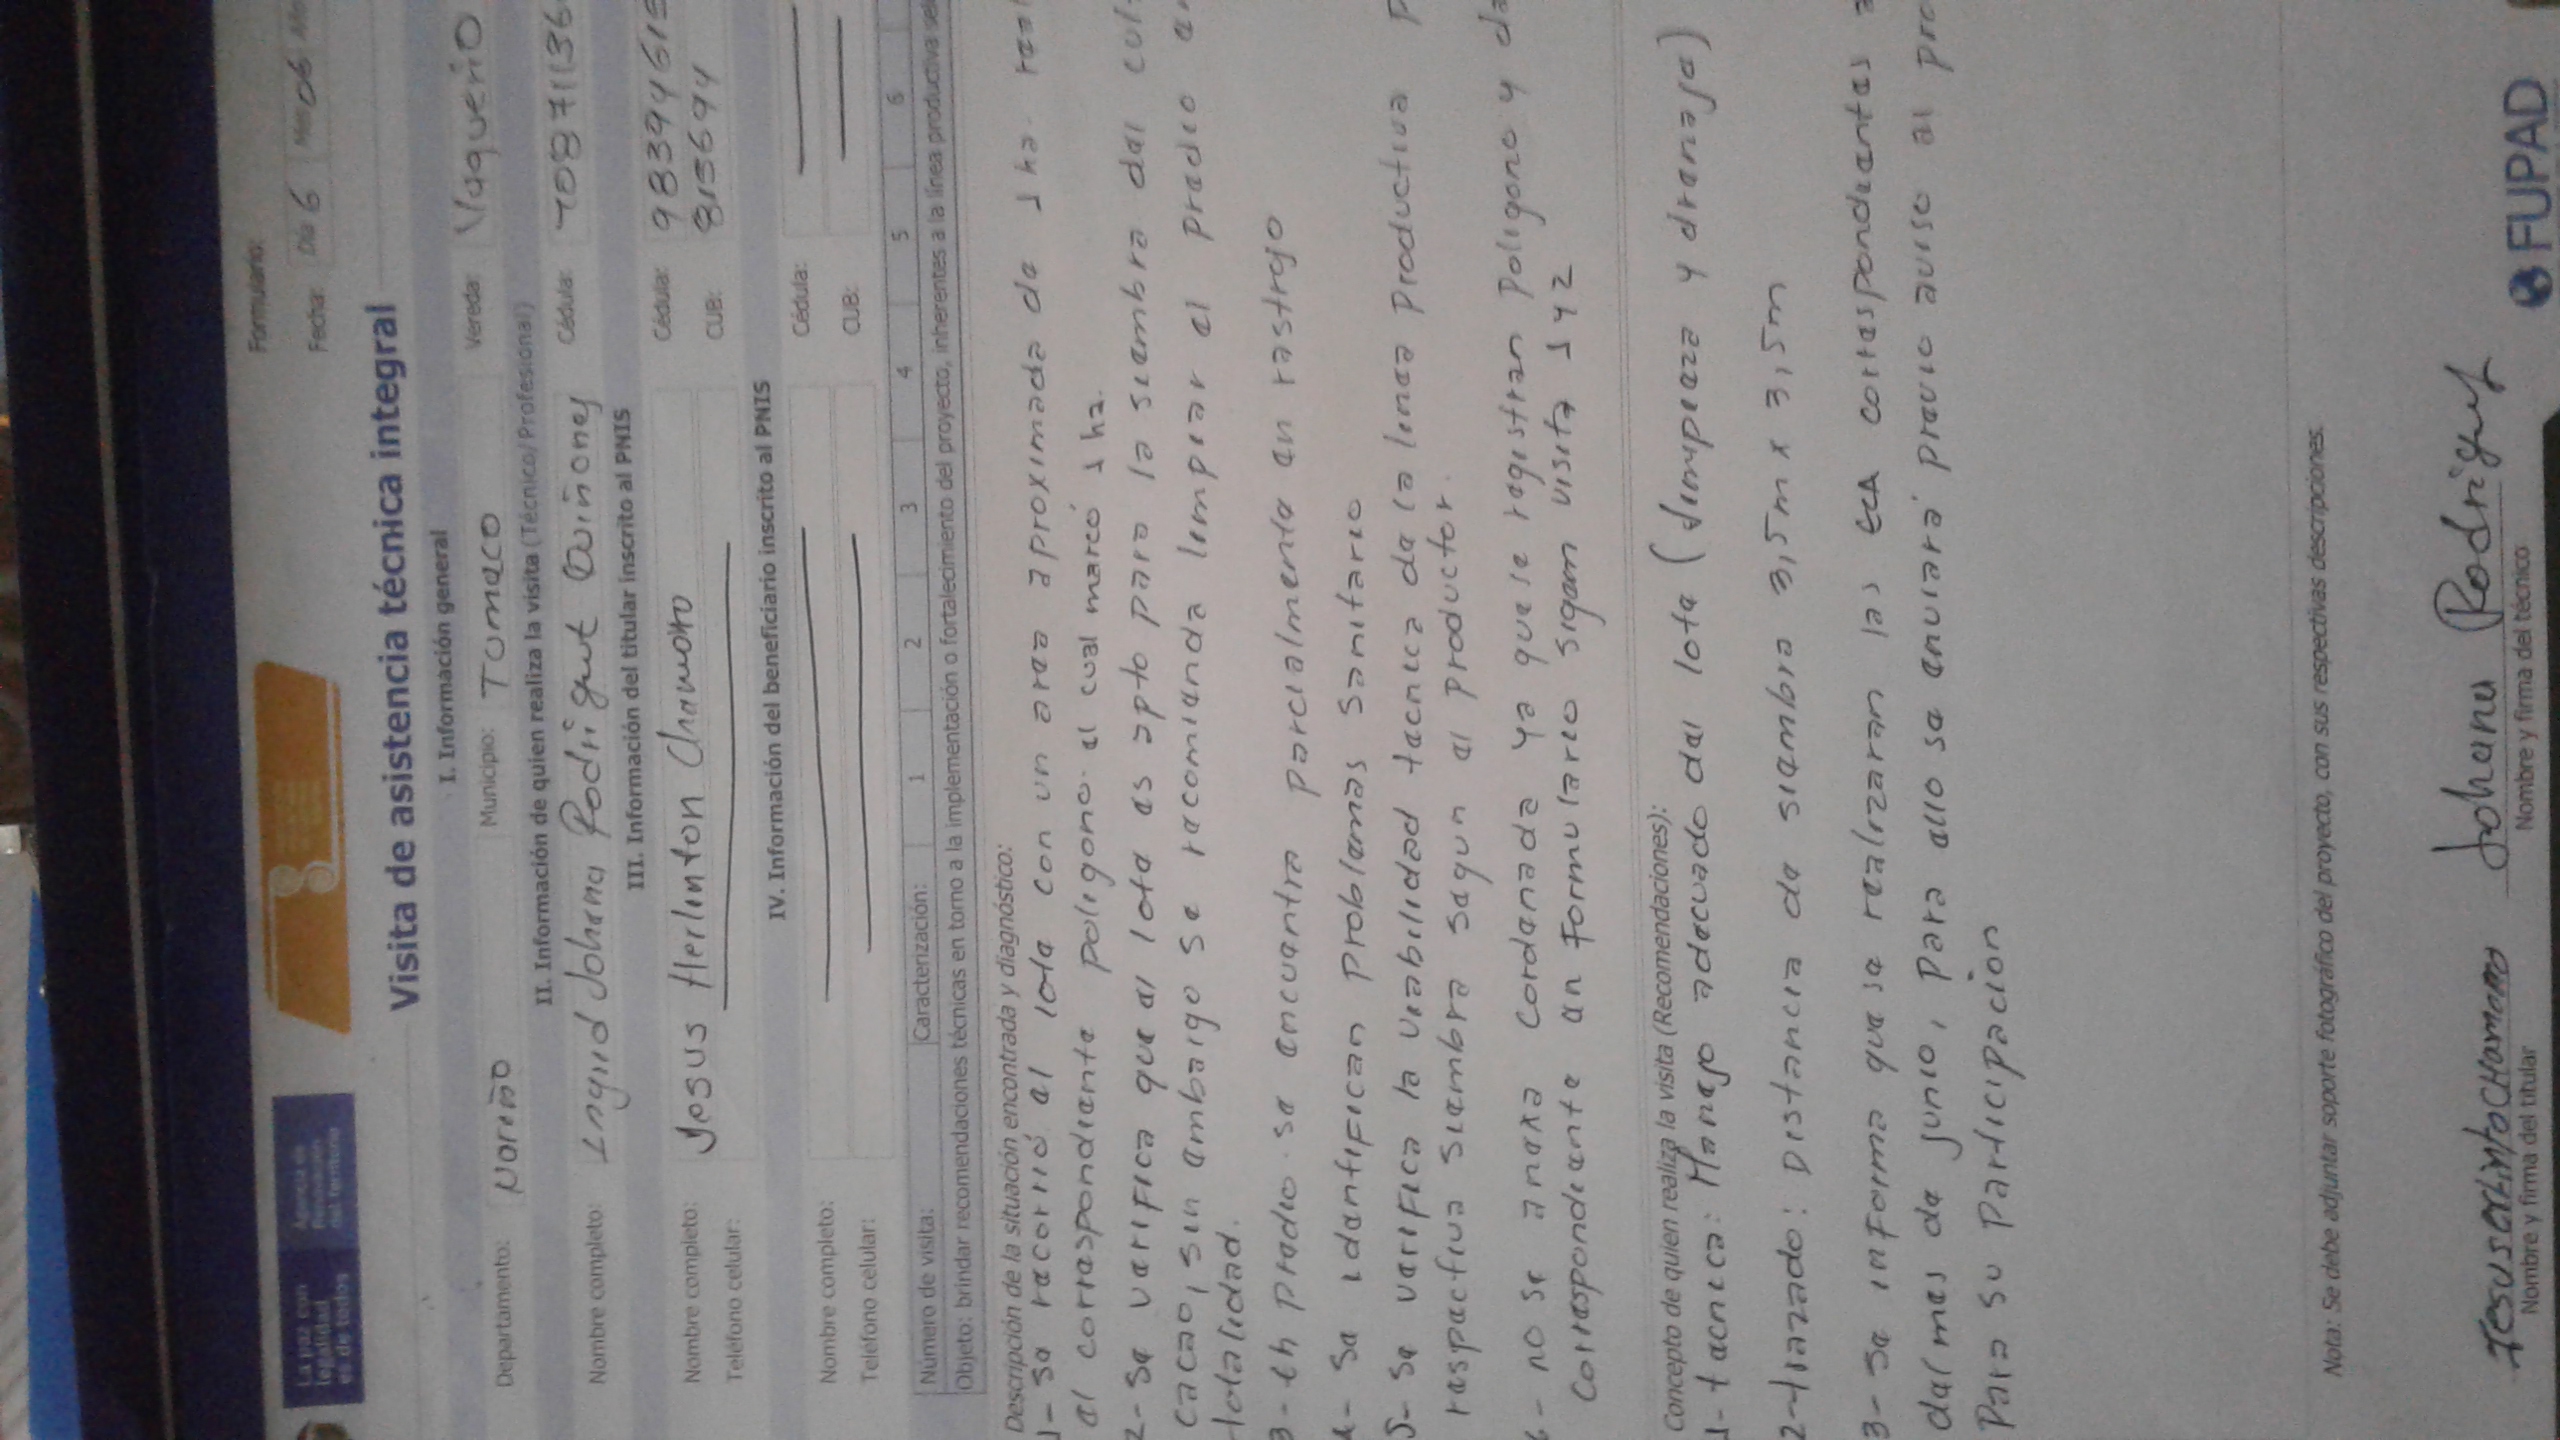 La paz con
legalidad
es de todos
Agencia de
Renovación
del Territorio
Formulario:
Fecha: Día 6 Mes 06 Año
Visita de asistencia técnica integral
I. Información general
Departamento: Nariño Municipio: Tumaco Vereda: Vaquerio
II. Información de quien realiza la visita (Técnico/Profesional)
Nombre completo: Ingrid Johana Rodriguez Quiñones Cédula: 108711136
III. Información del titular inscrito al PNIS
Nombre completo: Jesus Herlinton Chamorro Cédula: 98394615
Teléfono celular: CUB: 815694
IV. Información del beneficiario inscrito al PNIS
Nombre completo: Cédula:
Teléfono celular: CUB:
Número de visita: Caracterización: 1 2 3 4 5 6
Objeto: brindar recomendaciones técnicas en torno a la implementación o fortalecimiento del proyecto, inherentes a la línea productiva
Descripción de la situación encontrada y diagnóstico:
1- se recorrió el lote con un area aproximada de 1 ha.
el correspondiente poligono el cual marcó 1 ha.
2- Se verifica que el lote es apto para la siembra del
cacao, sin embargo se recomienda limpiar el predio en
totalidad.
3- el predio se encuentra parcialmente en rastrojo
4- Se identifican problemas sanitario
5- Se verifica la viabilidad tecnica de la linea productiva
respectiva siembra segun el productor.
6- no se anexa cordenada ya que se registran poligono y
correspondiente en formulario sigam visita 1 y 2
Concepto de quien realiza la visita (Recomendaciones):
1- tecnica: Manejo adecuado del lote (limpieza y drenaje)
2- trazado: Distancia de siembra 3,5m x 3,5m
3- Se informa que se realizaran las ECA correspondientes
del mes de junio, para ello se enviará previo aviso al
para su participacion
Nota: Se debe adjuntar soporte fotográfico del proyecto, con sus respectivas descripciones.
Johana Rodriguez
Nombre y firma del titular Nombre y firma del técnico
FUPAD